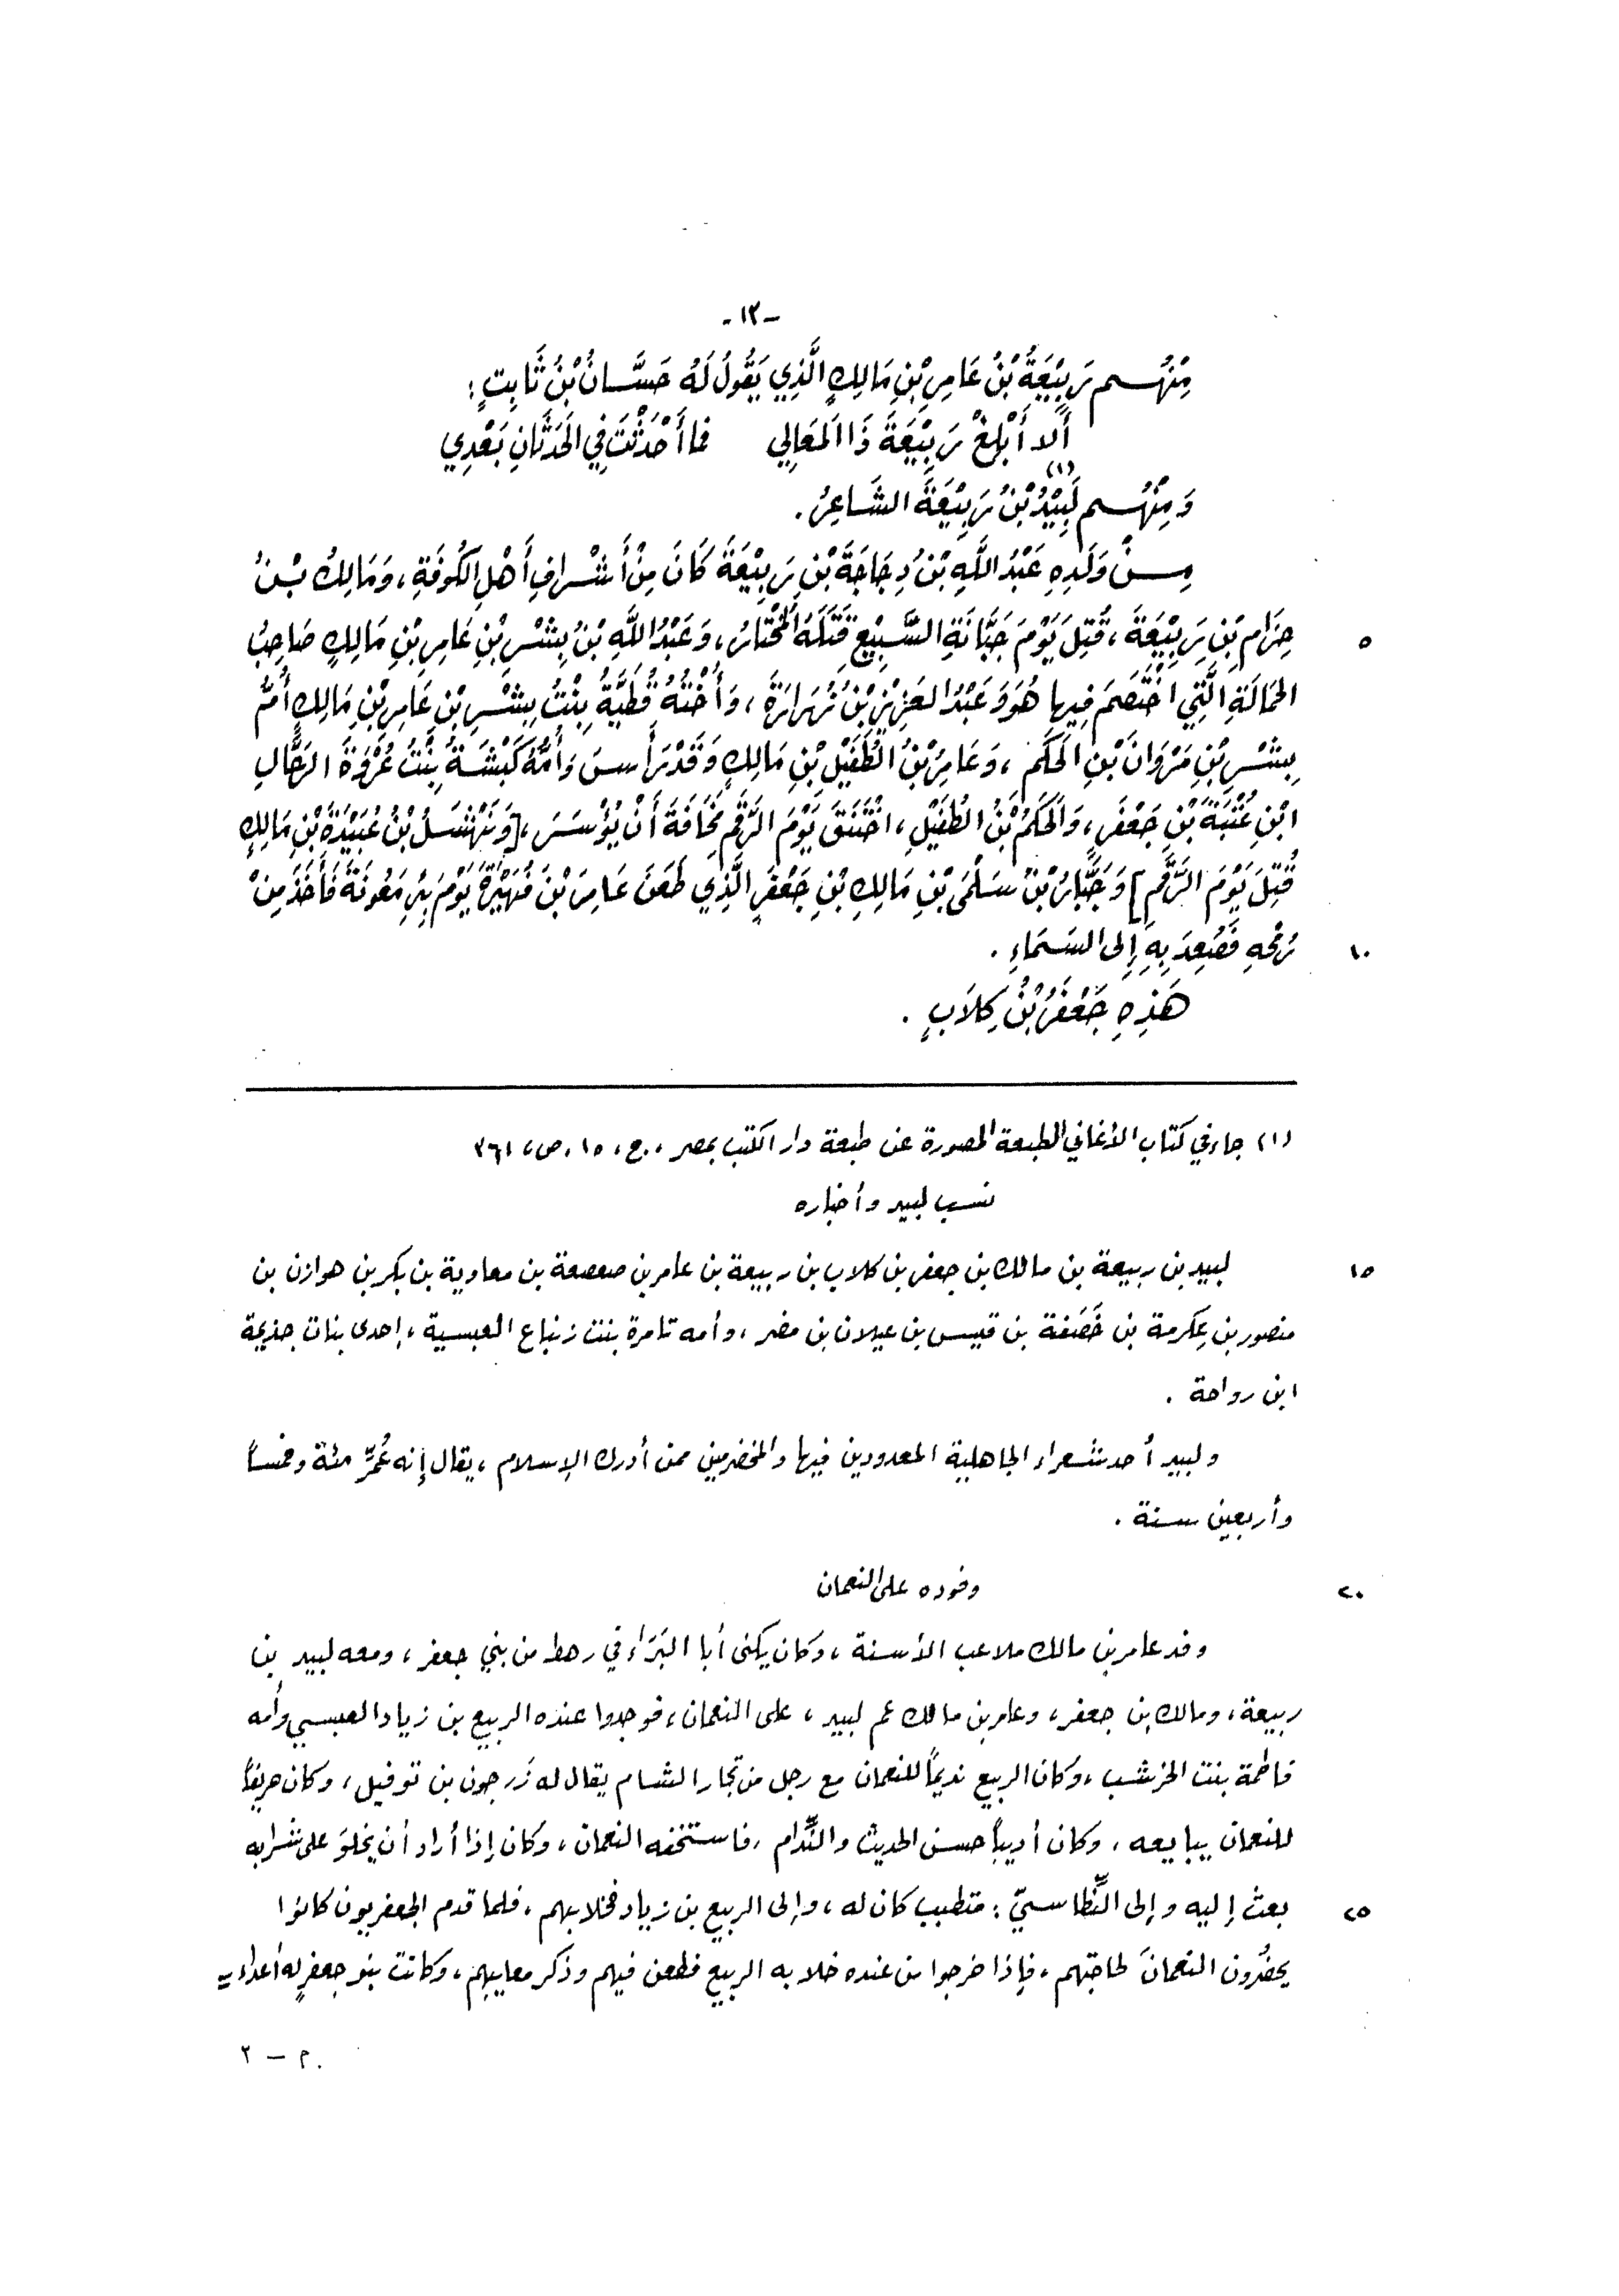 -١٣-
مِنْهُم رَبِيْعَةُ بْنُ عَامِرِ بْنِ مَالِكٍ الَّذِي يَقُولُ لَهُ حَسَّانُ بْنُ ثَابِتٍ :
أَلَا أَبْلِغْ رَبِيْعَةَ ذَا المَعَالِي فما أَحْدَثْتَ فِي الحَدَثَانِ بَعْدِي
وَمِنْهُم لَبِيْدُ(١) بْنُ رَبِيْعَةَ الشَاعِرُ .
مِنْ وَلَدِهِ عَبْدُ اللَّهِ بْنُ دِجَاجَةَ بْنِ رَبِيْعَةَ كَانَ مِنْ أَشْرَافِ أَهْلِ الكُوفَةِ ، وَمَالِكُ بْنُ
٥ حِزَامِ بْنِ رَبِيْعَةَ ، قُتِلَ يَوْمَ جَبَّانَةِ السَّبِيْعِ قَتَلَهُ المُخْتَارُ ، وَعَبْدُ اللَّهِ بْنُ بِشْرِ بْنِ عَامِرِ بْنِ مَالِكٍ صَاحِبُ
الحَمَالَةِ الَّتِي اخْتَصَمَ فِيها هُوَ وَعَبْدُ العَزِيْزِ بْنُ زُرَارَةَ ، وَأُخْتُهُ قُطَيَّةُ بِنْتُ بِشْرِ بْنِ عَامِرِ بْنِ مَالِكٍ أُمُّ
بِشْرِ بْنِ مَرْوَانَ بْنِ الحَكَمِ ، وَعَامِرُ بْنُ الطُفَيْلِ بْنِ مَالِكٍ وَقَدْ رَأَسَ وَأُمُّهُ كَبْشَةُ بِنْتُ عُرْوَةَ الرَحَّالِ
ابْنِ عُتْبَةَ بْنِ جَعْفَرٍ ، وَالحَكَمُ بْنُ الطُفَيْلِ ، اخْتَنَقَ يَوْمَ الرَّقَمِ مَخَافَةَ أَنْ يُؤْسَرَ ، [وَنَهْشَلُ بْنُ عُبَيْدَةَ بْنِ مَالِكٍ
قُتِلَ يَوْمَ الرَّقَمِ] وَجَبَّارُ بْنُ سَلْمَى بْنِ مَالِكِ بْنِ جَعْفَرٍ الَّذِي طَعَنَ عَامِرَ بْنَ فُهَيْرَةَ يَوْمَ بِئْرِ مَعُونَةَ فَأَخَذَ مِنْ
١٠ رُمْحِهِ فَصُعِدَ بِهِ إِلَى السَمَاءِ .
هَذِهِ جَعْفَرُ بْنُ كِلَابٍ .
(١) جاء في كتاب الأغاني الطبعة المصورة عن طبعة دار الكتب بمصر ، ج ، ١٥ ، ص ، ٣٦١
نسب لبيد وأخباره
١٥ لبيد بن ربيعة بن مالك بن جعفر بن كلاب بن ربيعة بن عامر بن صعصعة بن معاوية بن بكر بن هوازن بن
منصور بن عِكرمة بن خَصَفة بن قيس بن عيلان بن مضر ، وأمه تامرة بنت زنباع العبسية ، إحدى بنات جذيمة
ابن رواحة .
ولبيد أحد شعراء الجاهلية المعدودين فيها والمخضرمين ممن أدرك الإسلام ، يقال إنه عُمِّرَ مئة وخمساً
وأربعين سنة .
٢٠ وفوده على النعمان
وفد عامر بن مالك ملاعب الأسنة ، وكان يكنى أبا البَرَاء في رهط من بني جعفر ، ومعه لبيد بن
ربيعة ، ومالك بن جعفر ، وعامر بن مالك عم لبيد ، على النعمان ، فوجدوا عنده الربيع بن زياد العبسي وأمه
فاطمة بنت الخرشب ، وكان الربيع نديماً للنعمان مع رجل من تجار الشام يقال له زَرجون بن توفيل ، وكان حريفاً
للنعمان يبايعه ، وكان أديباً حسن الحديث والنِّدام ، فاستخفه النعمان ، وكان إذا أراد أن يخلوَ على شرابه
٢٥ بعث إليه وإلى النِّطاسيّ : متطبب كان له ، وإلى الربيع بن زياد فخلا بهم ، فلما قدم الجعفريون كانوا
يحضُرون النعمانَ لحاجتهم ، فإذا خرجوا من عنده خلا به الربيع فطعن فيهم وذكر معايبهم ، وكانت بنو جعفرٍ له أعداء =
م - ٢